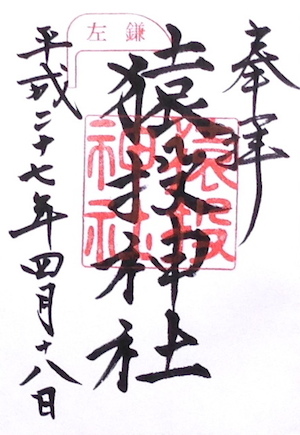 奉拝
猿投神社
平成二十七年四月十八日
左鎌
猿投
神社